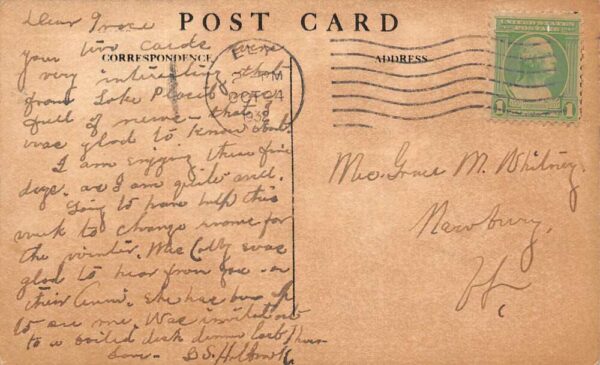 POST CARD
CORRESPONDENCE
ADDRESS
Dear Grace
your two cards were
very interesting that
from Lake Placid was
full of news - that I
was glad to know about.
I am enjoying these fine
days. as I am quite well.
Going to have help this
week to change rooms for
the winter. Mrs was
glad to hear from you - on
their Anni. She has been up
to see me. Was invited out
to a boiled dish dinner last Thurs-
Love - S.
PM
OCT 24
UNITED STATES POSTAGE
1 1
Mrs. Grace M. Whitney.
Newbury,
Vt.